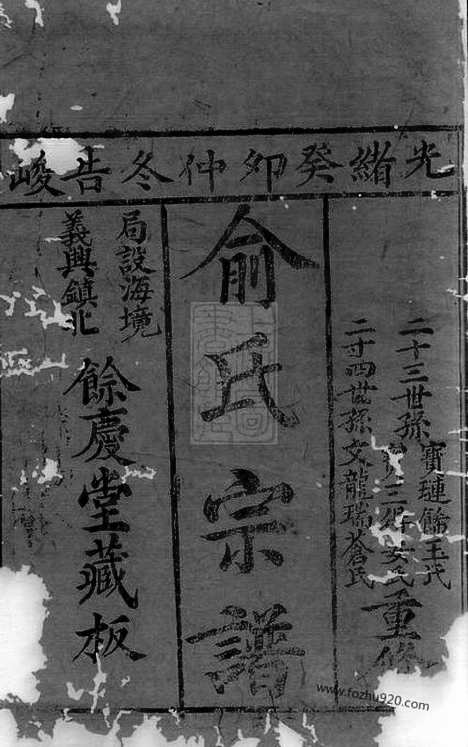 光緒癸卯仲冬告峻
二十三世孫
寶璉餘玉氏
二十四世孫文龍瑞蒼氏
重修
俞氏宗譜
局設海境
義興鎮北
餘慶堂藏板
www.fozhu920.com